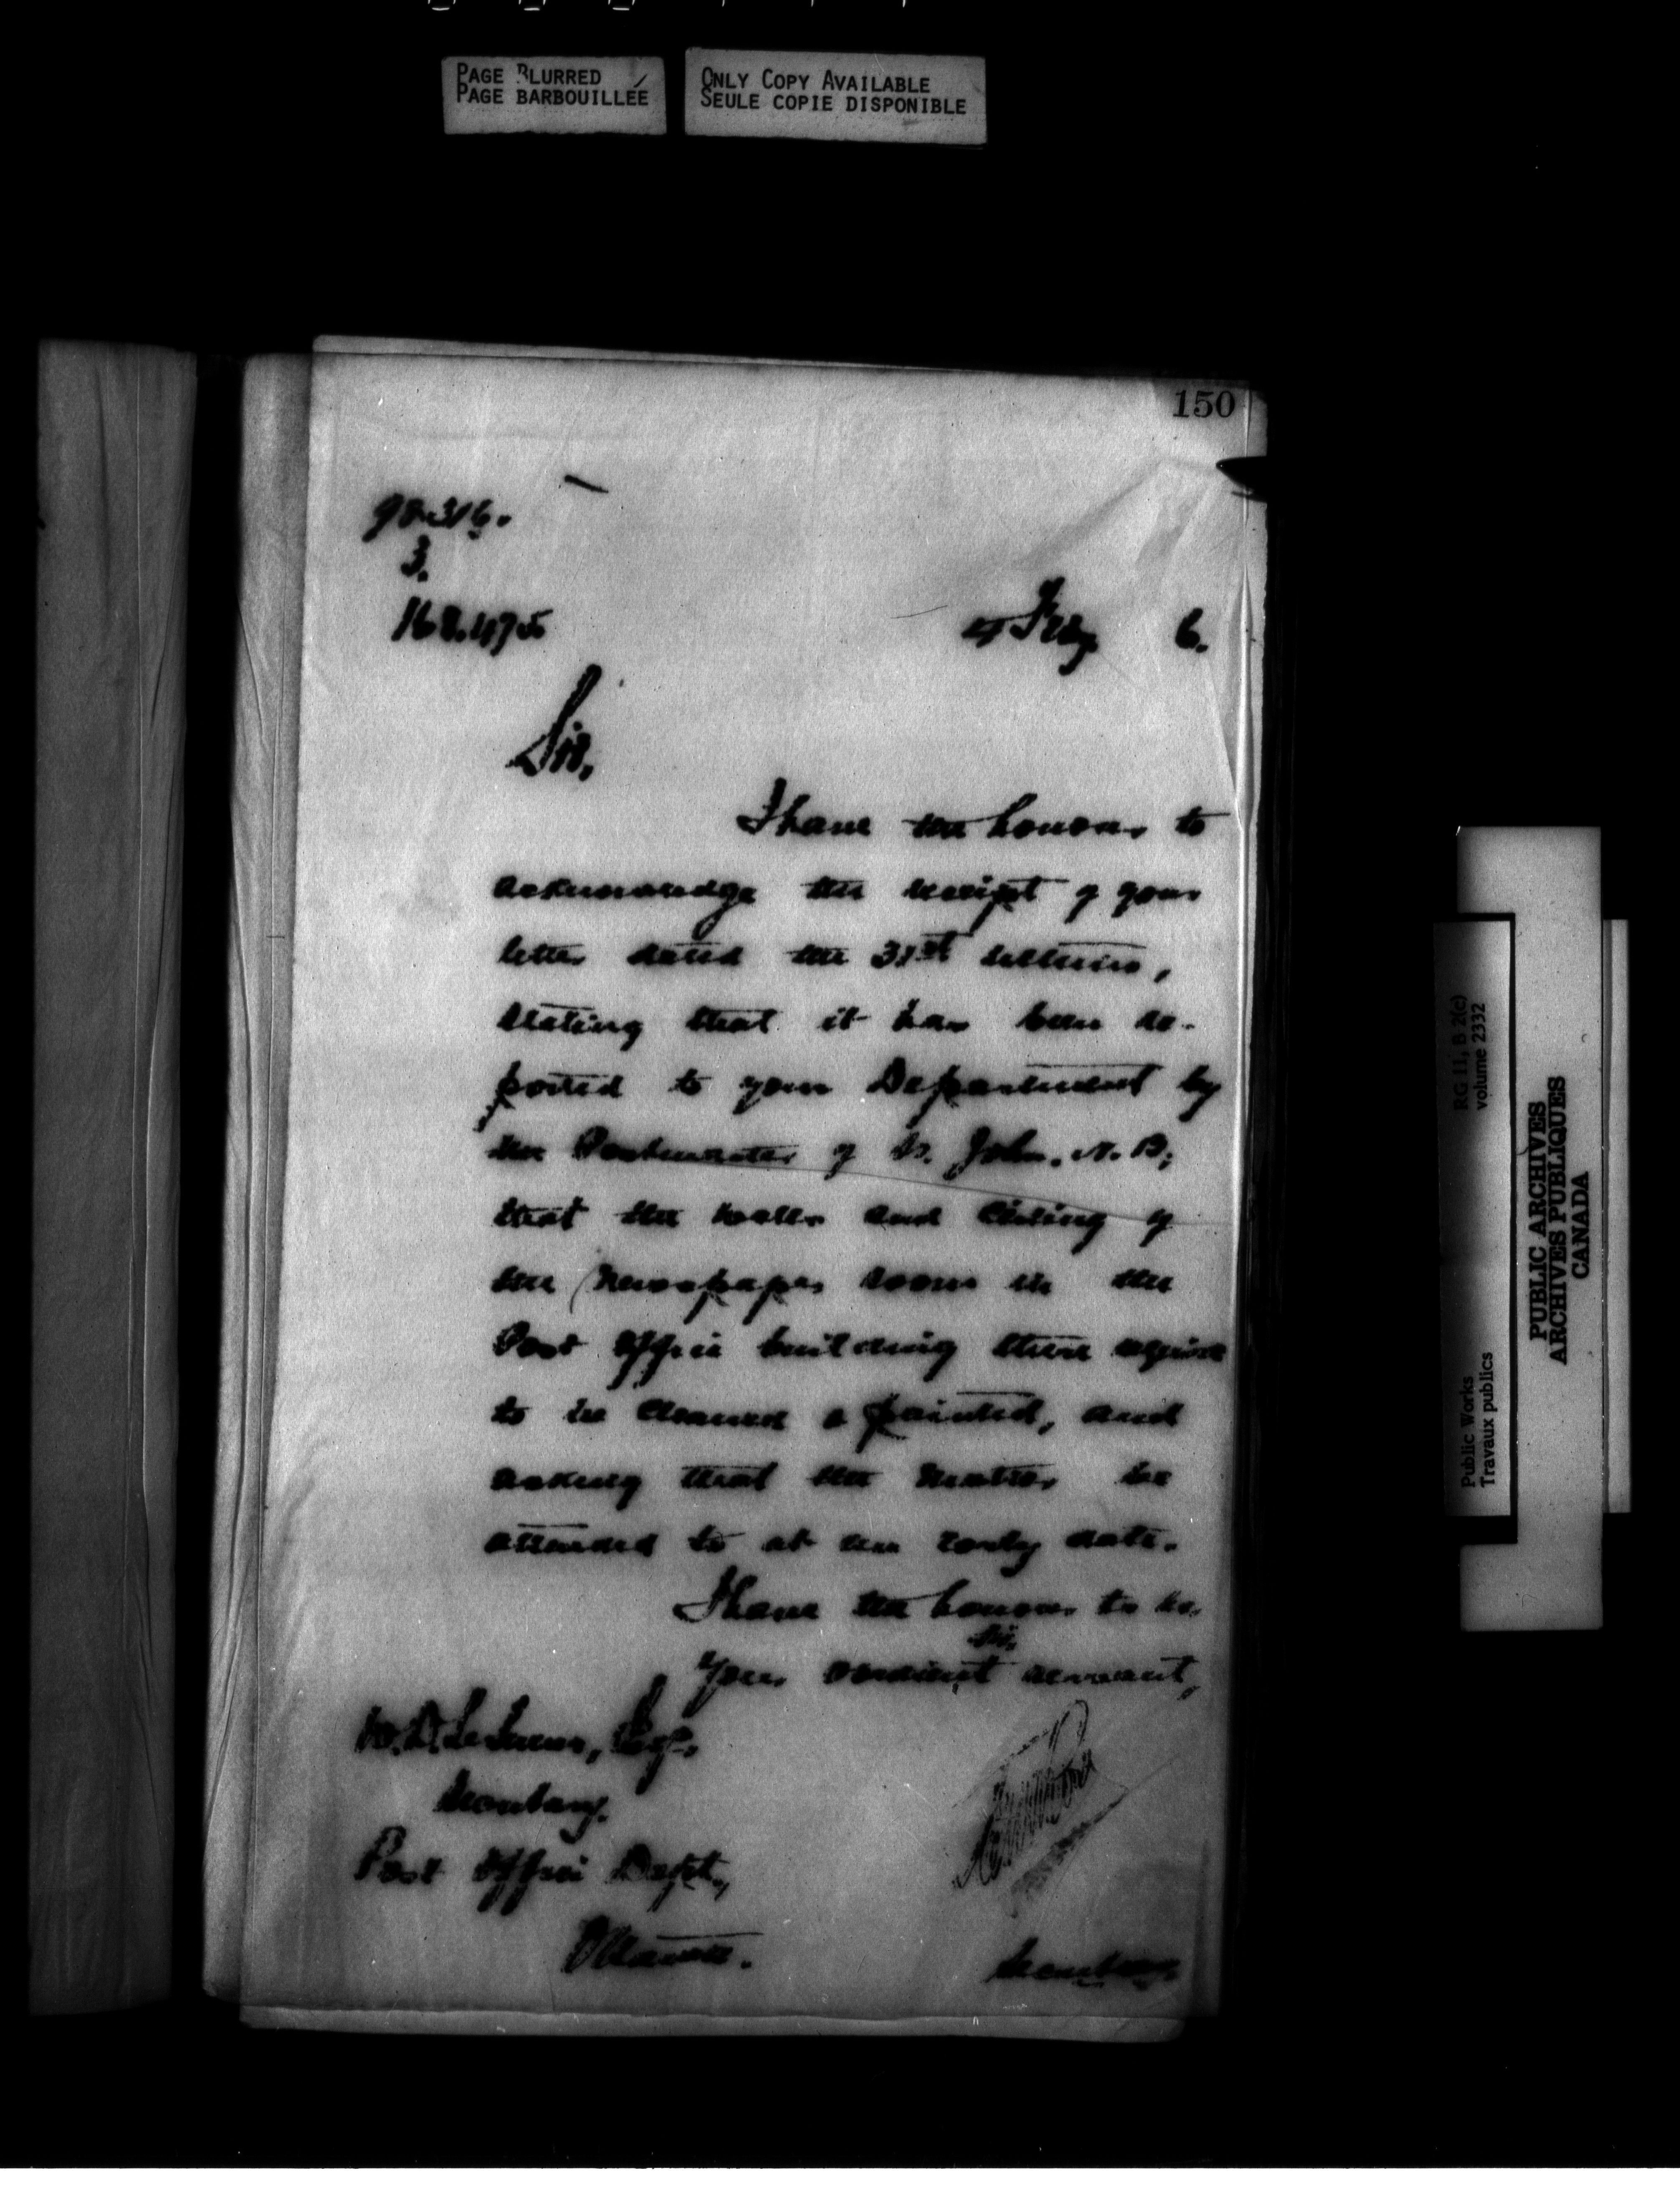 PAGE BLURRED
PAGE BARBOUILLÉE
ONLY COPY AVAILABLE
SEULE COPIE DISPONIBLE
150
3.
168.475
4 Feby. 6.
Sir,
I have the honour to
acknowledge the receipt of your
letter dated the 31st ultimo,
stating that it has been re-
ported to your Department by
the Postmaster of St. John. N. B,
that the walls and ceiling of
the Newspaper room in the
Post Office building there require
to be cleaned & painted, and
asking that the matter be
attended to at an early date.
I have the honour to be,
Sir,
Your obedient servant,
W. D. LeSueur, Esqr.
Secretary.
Post Office Dept.,
Ottawa.
Secretary
RG 11, B 2(c)
volume 2332
Public Works
Travaux publics
PUBLIC ARCHIVES
ARCHIVES PUBLIQUES
CANADA